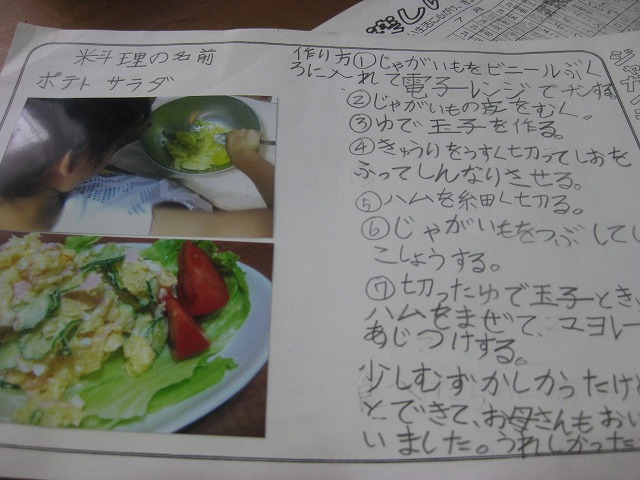 料理の名前
ポテトサラダ
作り方①じゃがいもをビニールぶく
ろに入れて電子レンジでチンする
②じゃがいもの皮をむく。
③ゆで玉子を作る。
④きゅうりをうすく切ってしおを
ふってしんなりさせる。
⑤ハムを細く切る。
⑥じゃがいもをつぶしてし
こしょうする。
⑦切ったゆで玉子とき
ハムをまぜて、マヨレー
あじつけする。
少しむずかしかったけ
とできて、お母さんもおい
いました。うれしかった